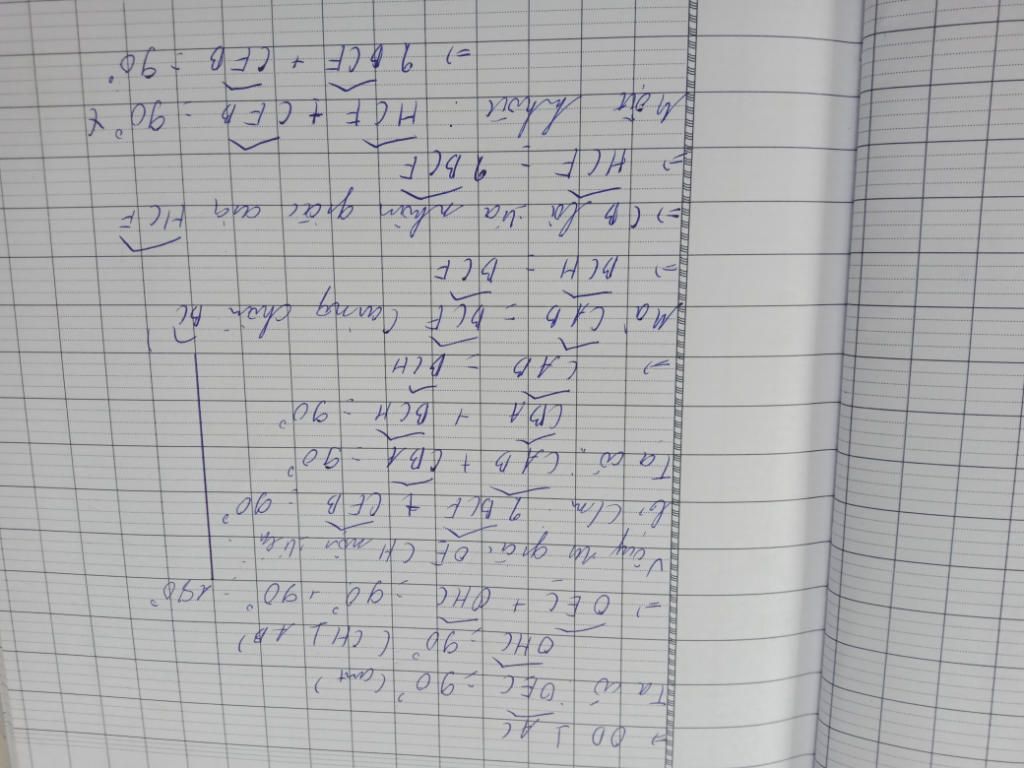 => OD ⊥ AC
Ta có: OEC = 90° (cmt)
OHC = 90° (CH ⊥ AB)
=> OEC + OHC = 90° + 90° = 180°
Vậy tứ giác OECH nội tiếp
b: C/m: 2 BCF + CFB = 90°
Ta có: CAB + CBA = 90°
CBA + BCH = 90°
=> CAB = BCH
Mà CAB = BCF (cùng chắn BC)
=> BCH = BCF
=> CB là tia phân giác của HCF
=> HCF = 2 BCF
Mặt khác: HCF + CFB = 90°
=> 2 BCF + CFB = 90°